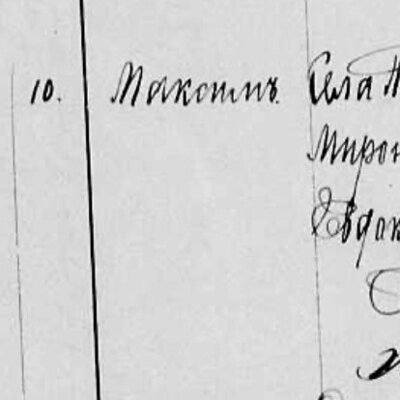 10. Максимъ. Села
Мирон
Евдок